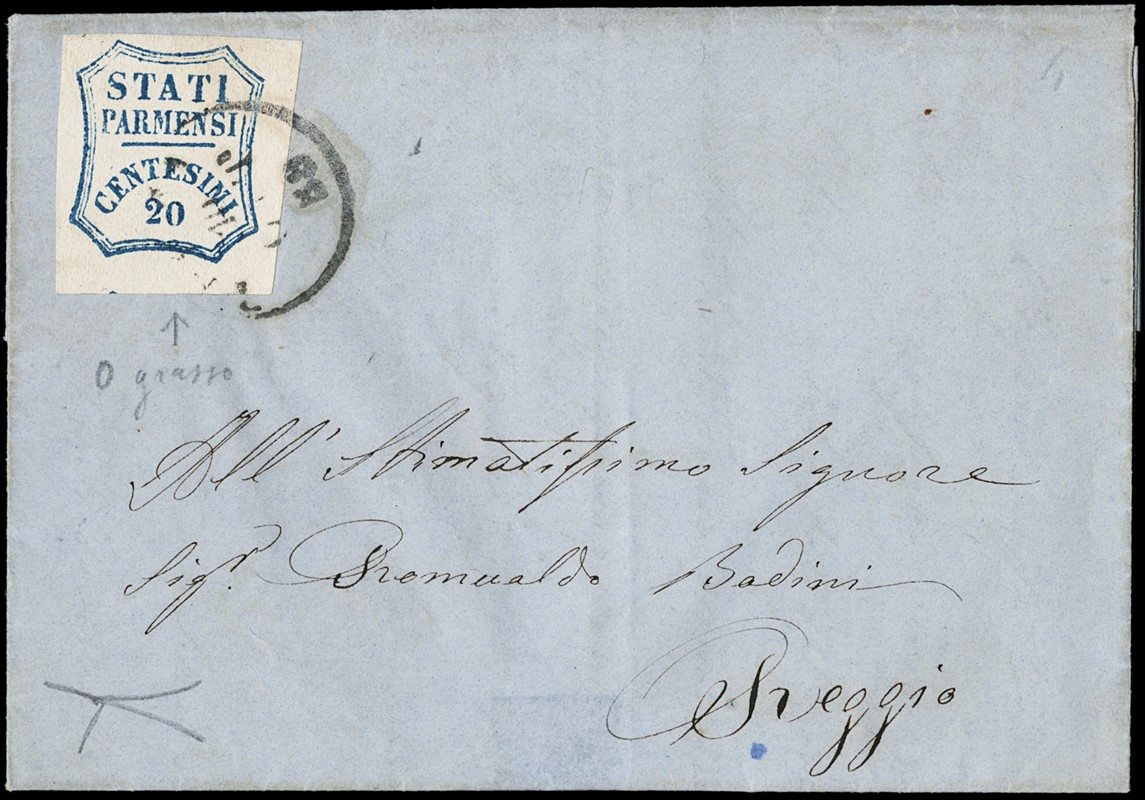 STATI
PARMENSI
CENTESIMI
20
O grasso
All' Stimatissimo Signore
Sigr. Romualdo Badini
Reggio